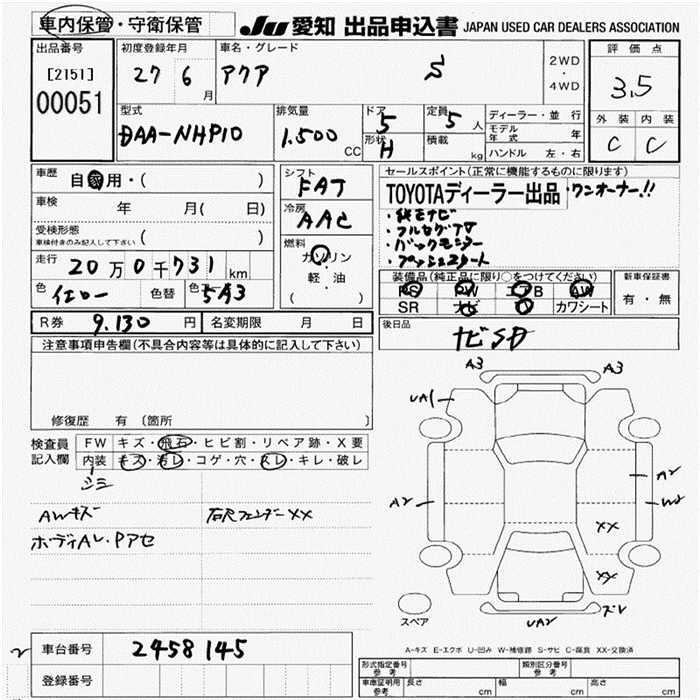 車内保管・守衛保管
JU 愛知 出品申込書 JAPAN USED CAR DEALERS ASSOCIATION
出品番号 初度登録年月 車名・グレード 評価点
[2151] 27 6月 アクア S 2WD・4WD 3.5
00051
型式 排気量 ドア 定員 ディーラー・並行 外装 内装
DAA-NHP10 1.500CC 5 5人 モデル年式 年 C C
形状 H 積載 kg ハンドル 左・右
車歴 自家用・( )
シフト FAT
セールスポイント(正常に機能するものに限ります)
TOYOTAディーラー出品・ワンオーナー!!
・純正ナビ
・フルセグTV
・バックモニター
・プッシュスタート
車検 年 月( 日)
冷房 AAC
受検形態 車検付きのみ記入して下さい ( )
燃料 ガソリン 軽・油 ( )
走行 20万0千731km
装備品(純正品に限り○をつけてください) 新車保証書
PS PW エアB AW 有・無
SR ナビ カワシート
色 イエロー 色替 カラーNo. 5A3
R券 9.130円 名変期限 月 日
後日品 ナビSD
注意事項申告欄(不具合内容等は具体的に記入して下さい)
修復歴 有 〔箇所 〕
検査員記入欄 FW キズ・飛石・ヒビ割・リペア跡・X要
内装 キズ・汚レ・コゲ・穴・スレ・キレ・破レ
シミ
AWキズ
ボディAU・Pアセ
A3 A3
UA1
A2 A2
XX
XX
UA2
スペア
A-キズ E-エクボ U-凹み W-補修跡 S-サビ C-腐食 XX-交換済
車台番号 2458145
登録番号
形式指定番号 参考 類別区分番号 参考
車庫証明用 参考 長さ cm 幅 cm 高さ cm